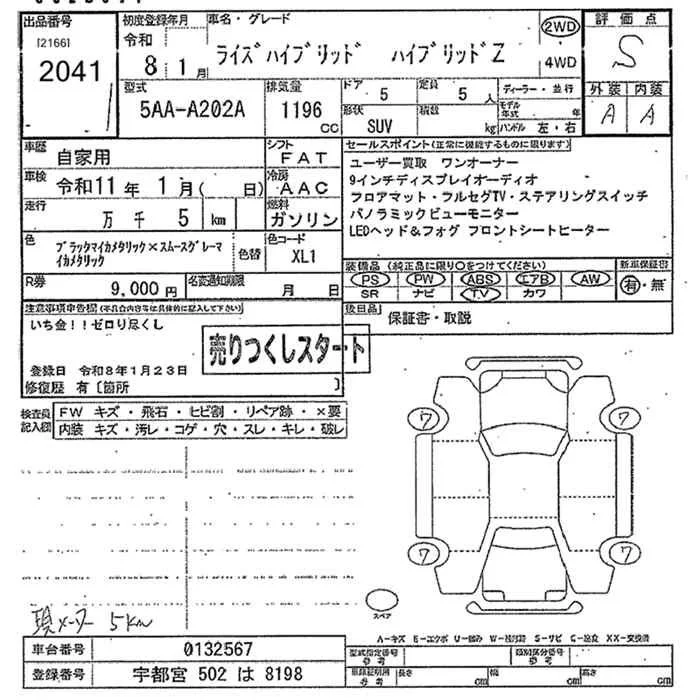 出品番号
[2166]
2041
初度登録年月
令和
8年 1月
車名・グレード
ライズハイブリッド ハイブリッドZ
2WD
4WD
評価点
S
外装 内装
A A
型式
5AA-A202A
排気量
1196
cc
ドア
5
定員
5人
形状
SUV
積数
kg
ディーラー・並行
モデル年式 年
ハンドル 左・右
車歴
自家用
シフト
FAT
車検
令和11年 1月( 日)
冷房
AAC
走行
万 千 5 km
燃料
ガソリン
色
ブラックマイカメタリック×スムースグレーマイカメタリック
色替
色コード
XL1
R券
9,000円
名変通知期限
月 日
セールスポイント(正常に機能するものに限ります)
ユーザー買取 ワンオーナー
9インチディスプレイオーディオ
フロアマット・フルセグTV・ステアリングスイッチ
パノラミックビューモニター
LEDヘッド&フォグ フロントシートヒーター
装備品 (純正品に限り○をつけてください)
新車保証書
PS PW ABS エアB AW
有・無
SR ナビ TV カワ
後日品
保証書・取説
注意事項申告欄(不具合内容等は具体的に記入して下さい)
いち金!!ゼロり尽くし
売りつくしスタート
登録日 令和8年1月23日
修復歴 有〔箇所 〕
検査員記入図
FW キズ・飛石・ヒビ割・リペア跡・×要
内装 キズ・汚レ・コゲ・穴・スレ・キレ・破レ
ワ ワ
ワ ワ
スペア
現メーター 5km
A-キズ E-エクボ U-凹み W-波河跡 S-サビ C-腐食 XX-交換済
車台番号
0132567
登録番号
宇都宮 502 は 8198
型式指定番号
参考
類別区分番号
参考
車庫証明用
参考
長さ cm
幅 cm
高さ cm